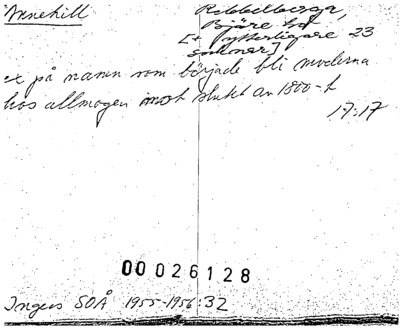 Annehill
Rebbelberga,
Bjäre hd
[+ ytterligare 23
socknar]
ex på namn som började bli moderna
hos allmogen mot slutet av 1800-t
17:17
00 026128
Ingers SOÅ 1955-1956:32